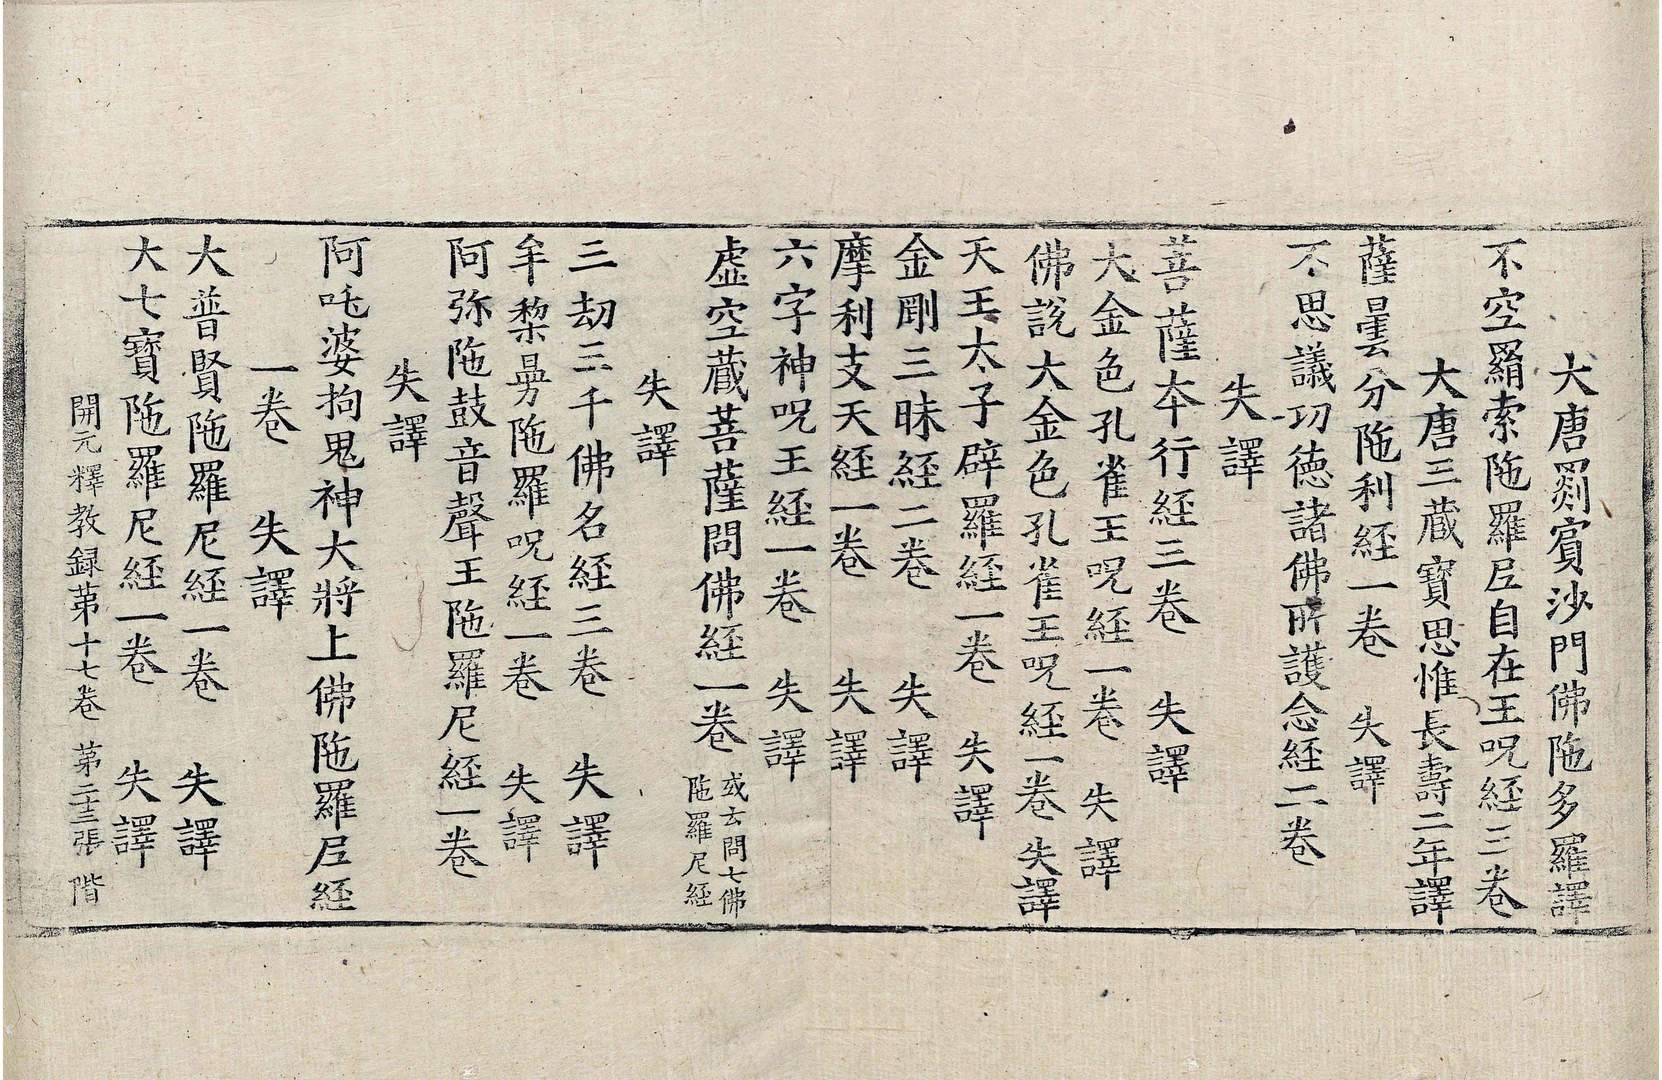 大唐罽賔沙門佛陁多羅譯
不空羂索陁羅尼自在王呪經三卷
大唐三藏寶思惟長壽二年譯
薩曇分陁利經一卷 失譯
不思議功德諸佛所護念經二卷
失譯
菩薩夲行經三卷 失譯
大金色孔雀王呪經一卷 失譯
佛説大金色孔雀王呪經一卷 失譯
天王太子辟羅經一卷 失譯
金剛三昧經二卷 失譯
摩利支天經一卷 失譯
六字神呪王經一卷 失譯
虚空藏菩薩問佛經一卷 或云問七佛
陁羅尼經
失譯
三劫三千佛名經三卷 失譯
牟棃曼陁羅呪經一卷 失譯
阿弥陁鼓音聲王陁羅尼經一卷
失譯
阿吒婆拘鬼神大將上佛陁羅尼經
一卷 失譯
大普賢陁羅尼經一卷 失譯
大七寶陁羅尼經一卷 失譯
開元釋教録苐十七卷 苐二十三張 階